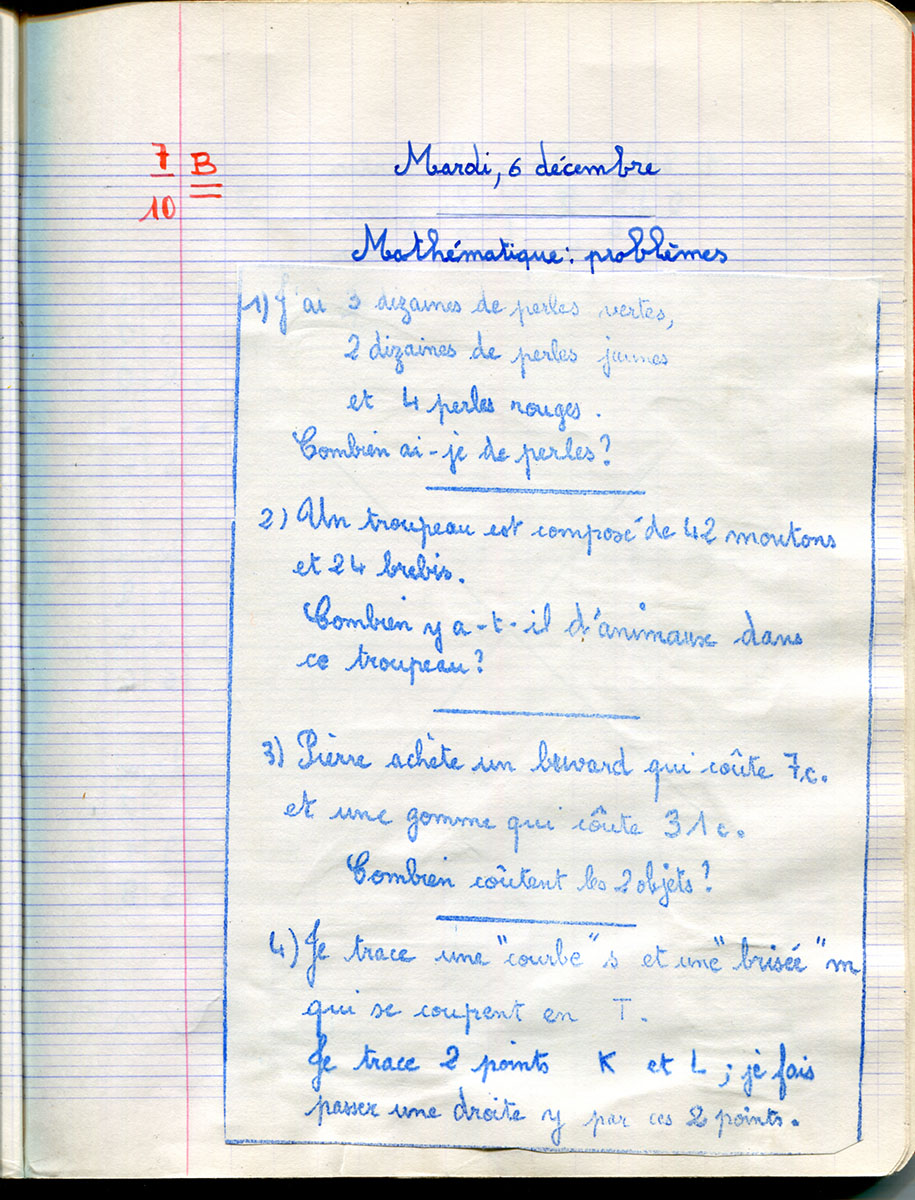 7 B
10
Mardi, 6 décembre
Mathématique : problèmes
1) J'ai 3 dizaines de perles vertes,
2 dizaines de perles jaunes
et 4 perles rouges.
Combien ai-je de perles ?
2) Un troupeau est composé de 42 moutons
et 24 brebis.
Combien y a-t-il d'animaux dans
ce troupeau ?
3) Pierre achète un buvard qui coûte 7c.
et une gomme qui coûte 31c.
Combien coûtent les 2 objets ?
4) Je trace une "courbe" s et une "brisée" m
qui se coupent en T.
Je trace 2 points K et L ; je fais
passer une droite y par ces 2 points.